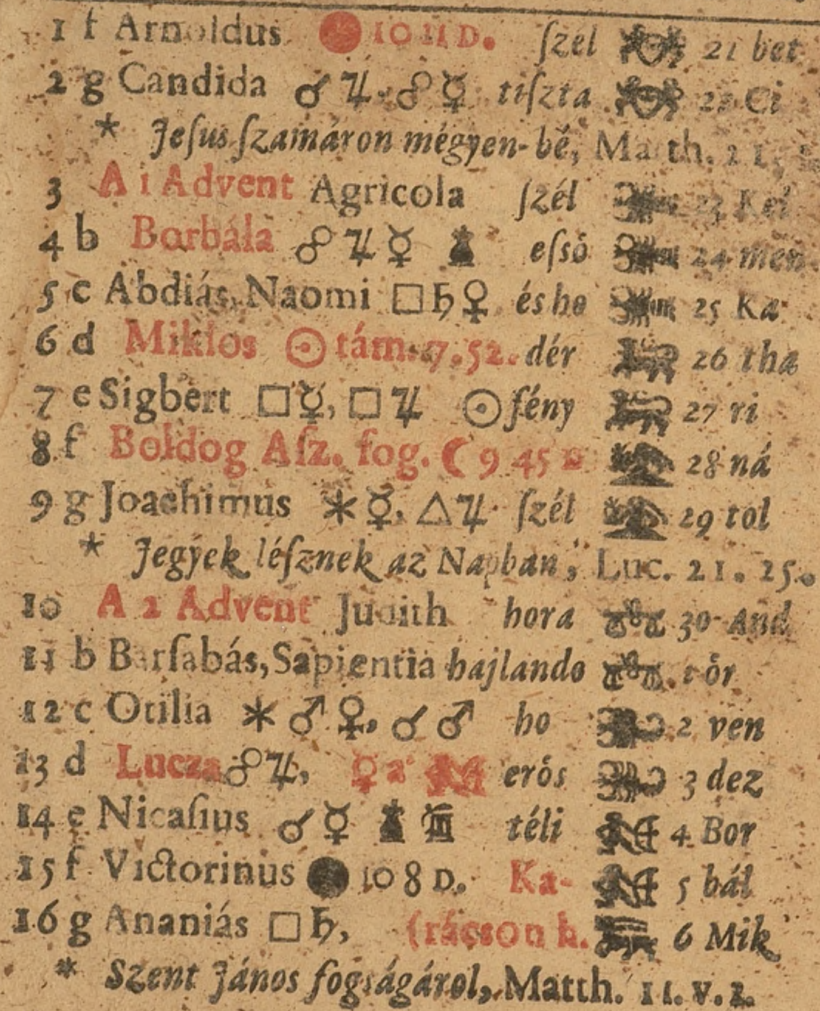 1 f Arnoldus 10 11 D. ſzel 21 bet
2 g Candida ☌ ♃. ☍ ☿ tiſzta 22 Ci
* Jeſus ſzamáron mégyen-bé, Matth. 21.
3 A 1 Advent Agricola ſzél 23 Kel
4 b Borbála ☍ ♃ ☿ eſsö 24 men
5 c Abdiás, Naomi □ ♄ ♀ és ho 25 Ka
6 d Miklos ☉ tám. 7. 52. dér 26 tha
7 e Sigbert □ ☿, □ ♃ ☉ fény 27 ri
8 f Boldog Aſz. fog. ☾ 9 45 28 ná
9 g Joachimus ⚹ ☿, △ ♃ ſzél 29 tol
* Jegyek léſznek az Napban, Luc. 21. 25.
10 A 2 Advent Judith hora 30 And
11 b Barſabás, Sapientia hajlando 1 ör
12 c Otilia ⚹ ♂ ♀, ☌ ♂ ho 2 ven
13 d Lucza ☍ ♃, ♀ a erös 3 dez
14 e Nicaſius ☌ ☿ téli 4 Bor
15 f Victorinus ● 10 8 D. Ka- 5 bál
16 g Ananiás □ ♄, (rácson h. 6 Mik
* Szent János fogságárol, Matth. 11. v. 2.